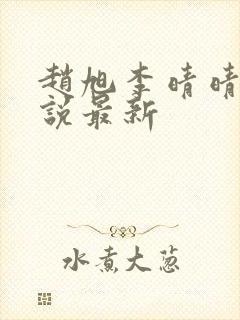 趙旭李晴晴
說最新
水煮大葱